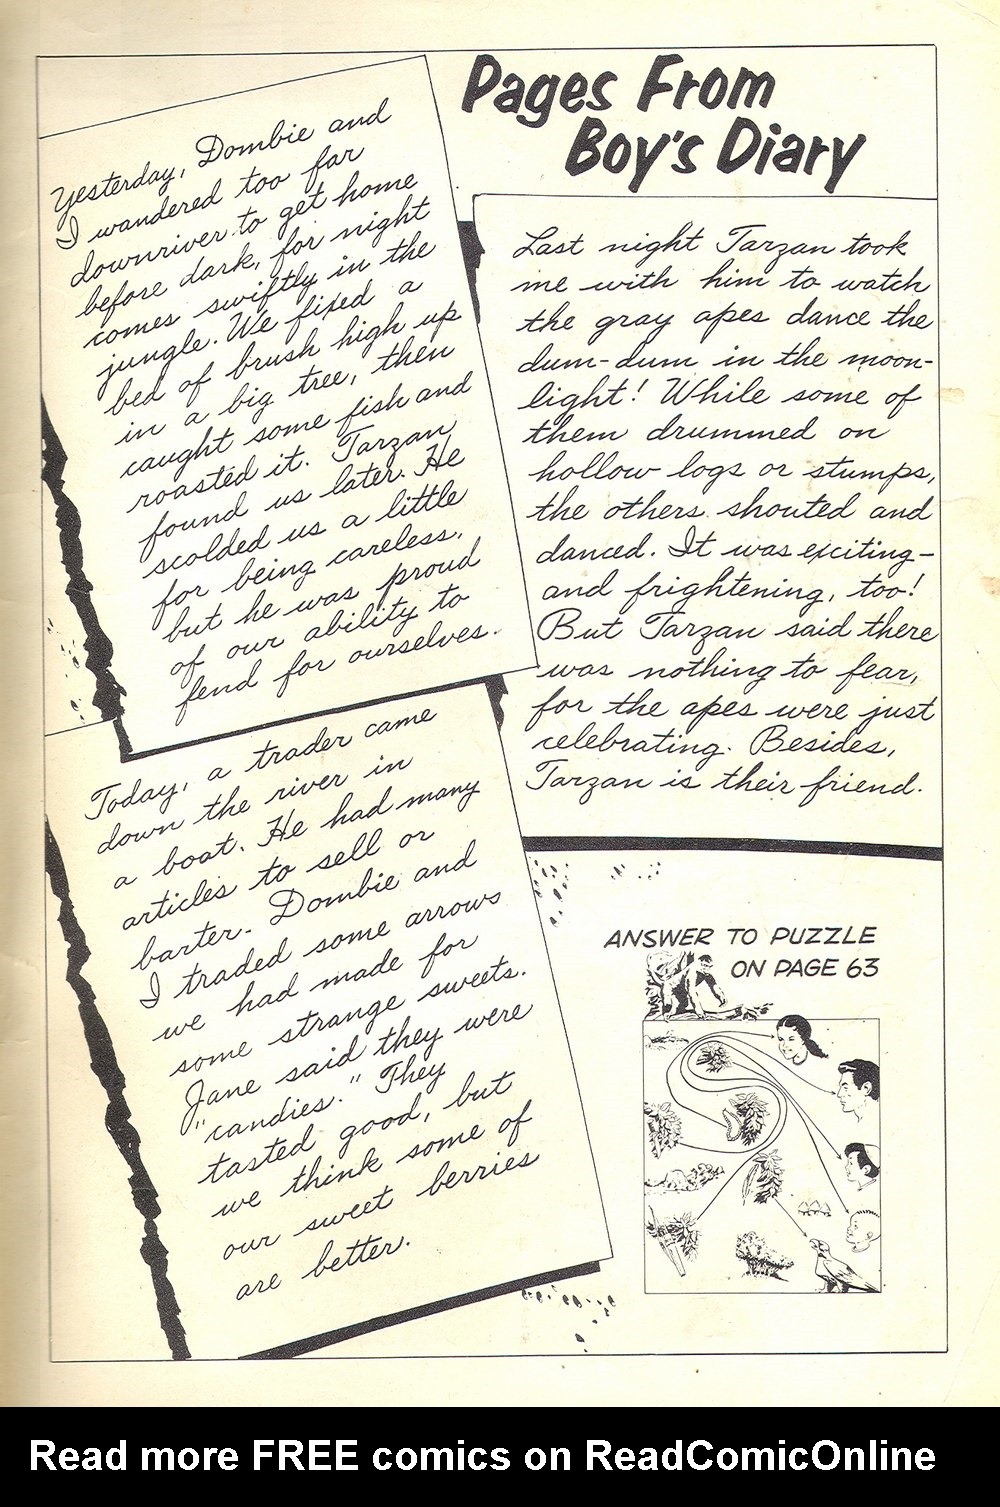 Pages From
Boy's Diary
Yesterday, Dombie and
I wandered too far
downriver to get home
before dark, for night
comes swiftly in the
jungle. We fixed a
bed of brush high up
in a big tree, then
caught some fish and
roasted it. Tarzan
found us later. He
scolded us a little
for being careless,
but he was proud
of our ability to
fend for ourselves.
Last night Tarzan took
me with him to watch
the gray apes dance the
dum-dum in the moon-
light! While some of
them drummed on
hollow logs or stumps,
the others shouted and
danced. It was exciting-
and frightening, too!
But Tarzan said there
was nothing to fear,
for the apes were just
celebrating. Besides,
Tarzan is their friend.
Today, a trader came
down the river in
a boat. He had many
articles to sell or
barter. Dombie and
I traded some arrows
we had made for
some strange sweets.
Jane said they were
"candies." They
tasted good, but
we think some of
our sweet berries
are better.
ANSWER TO PUZZLE
ON PAGE 63
Read more FREE comics on ReadComicOnline